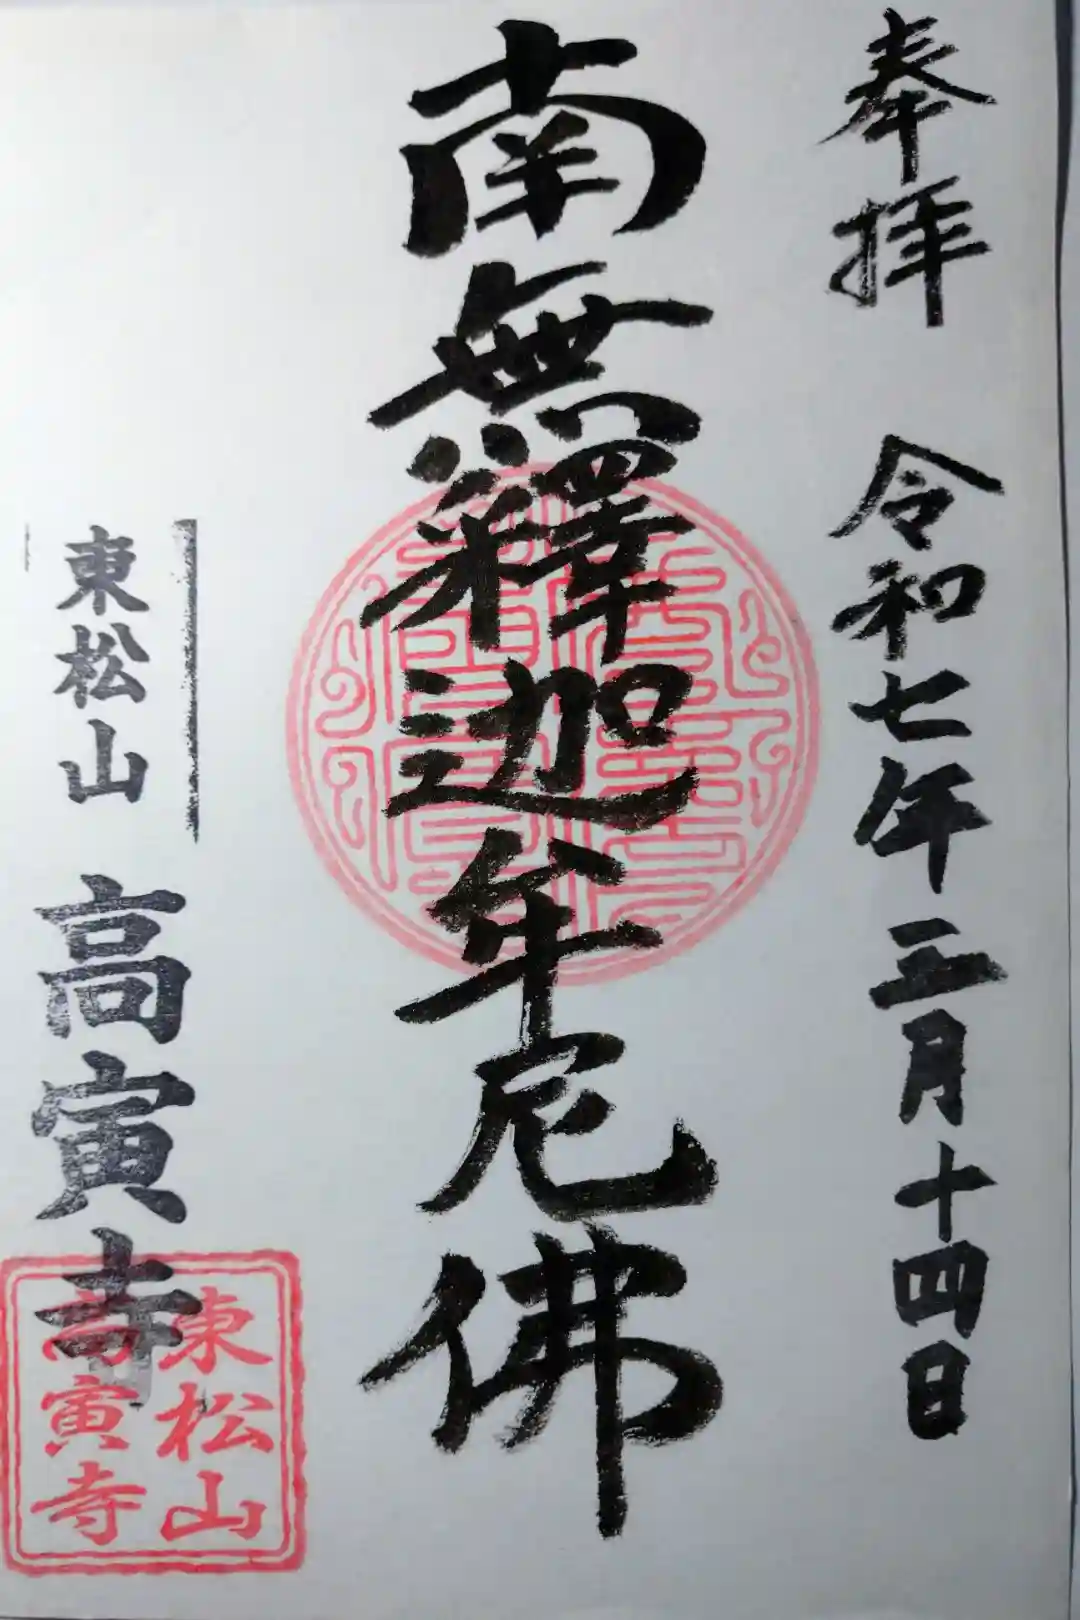 奉拝　令和七年三月十四日
南無釋迦牟尼佛
東松山　高寅寺
東松山
高寅寺